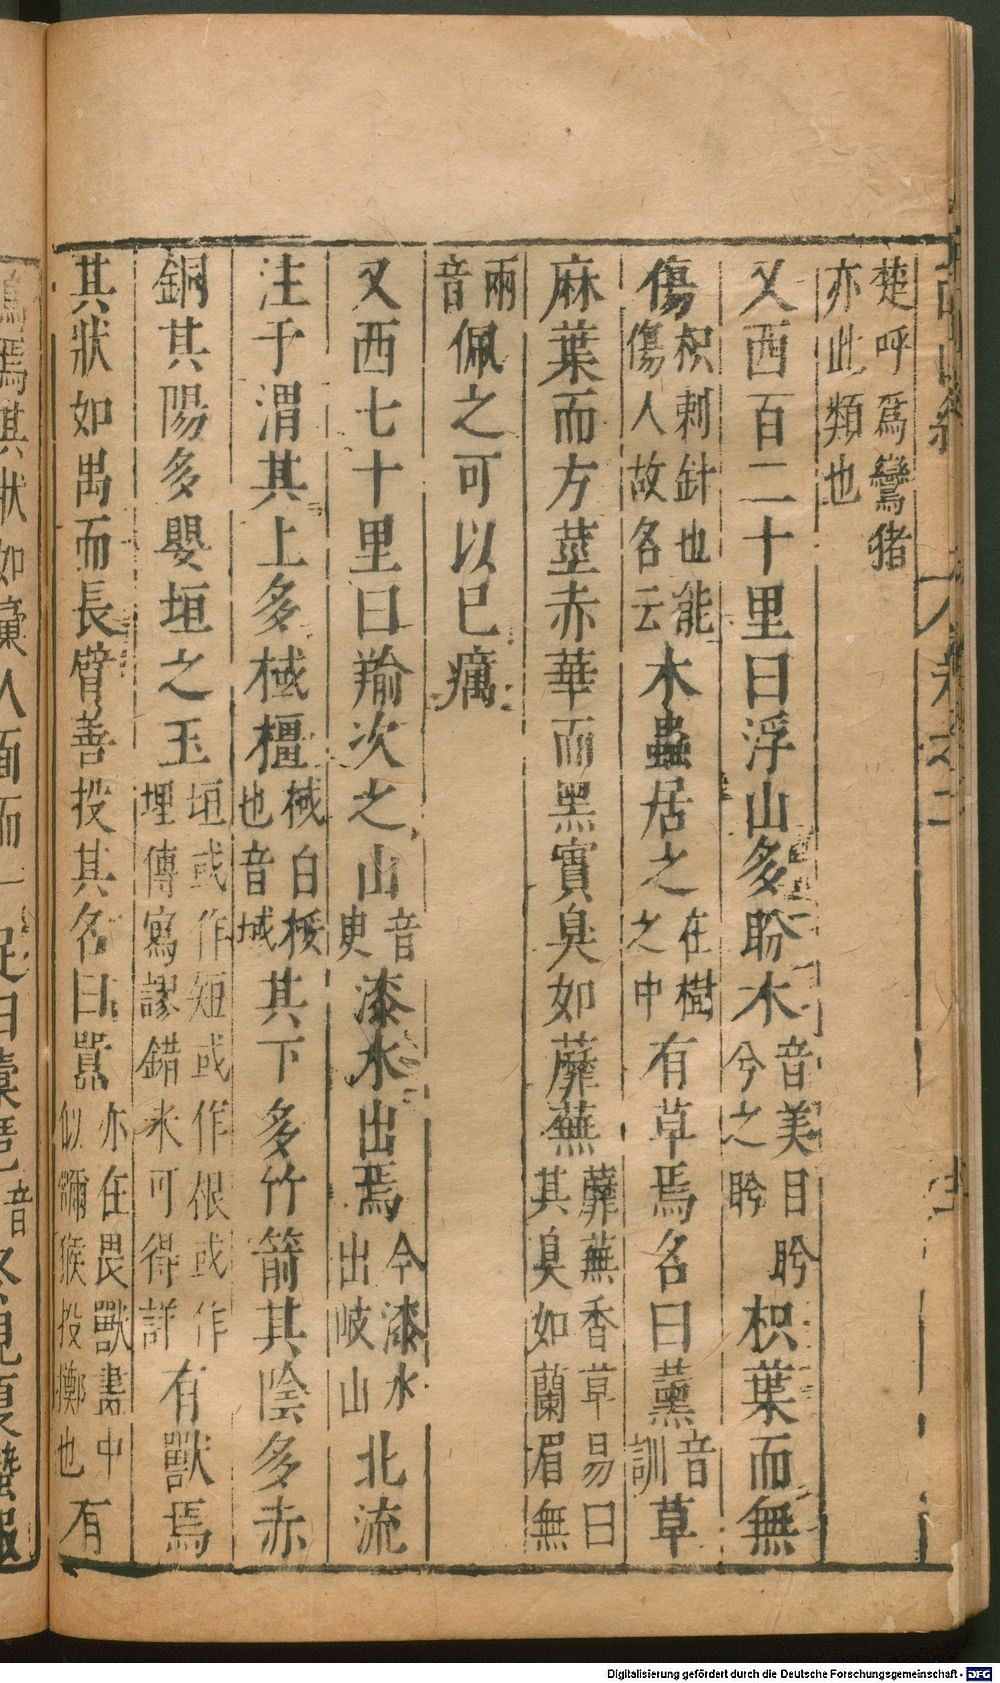 楚呼爲鸞猪
亦此類也
又西百二十里曰浮山多盼木音美目盼兮之盼枳葉而無
傷枳刺針也能傷人故名云木蟲居之在樹之中有草焉名曰薰音訓草
麻葉而方莖赤華而黑實臭如蘼蕪蘼蕪香草易曰其臭如蘭眉無
兩音佩之可以已癘
又西七十里曰羭次之山音臾漆水出焉今漆水出岐山北流
注于渭其上多棫橿棫白桵也音域其下多竹箭其陰多赤
銅其陽多嬰垣之玉垣或作短或作根或作埋傳寫謬錯未可得詳有獸焉
其狀如禺而長臂善投其名曰嚻亦在畏獸畵中似獼猴投擲也有
焉其狀如彙人面而一足曰橐𩇯音
Digitalisierung gefördert durch die Deutsche Forschungsgemeinschaft - DFG